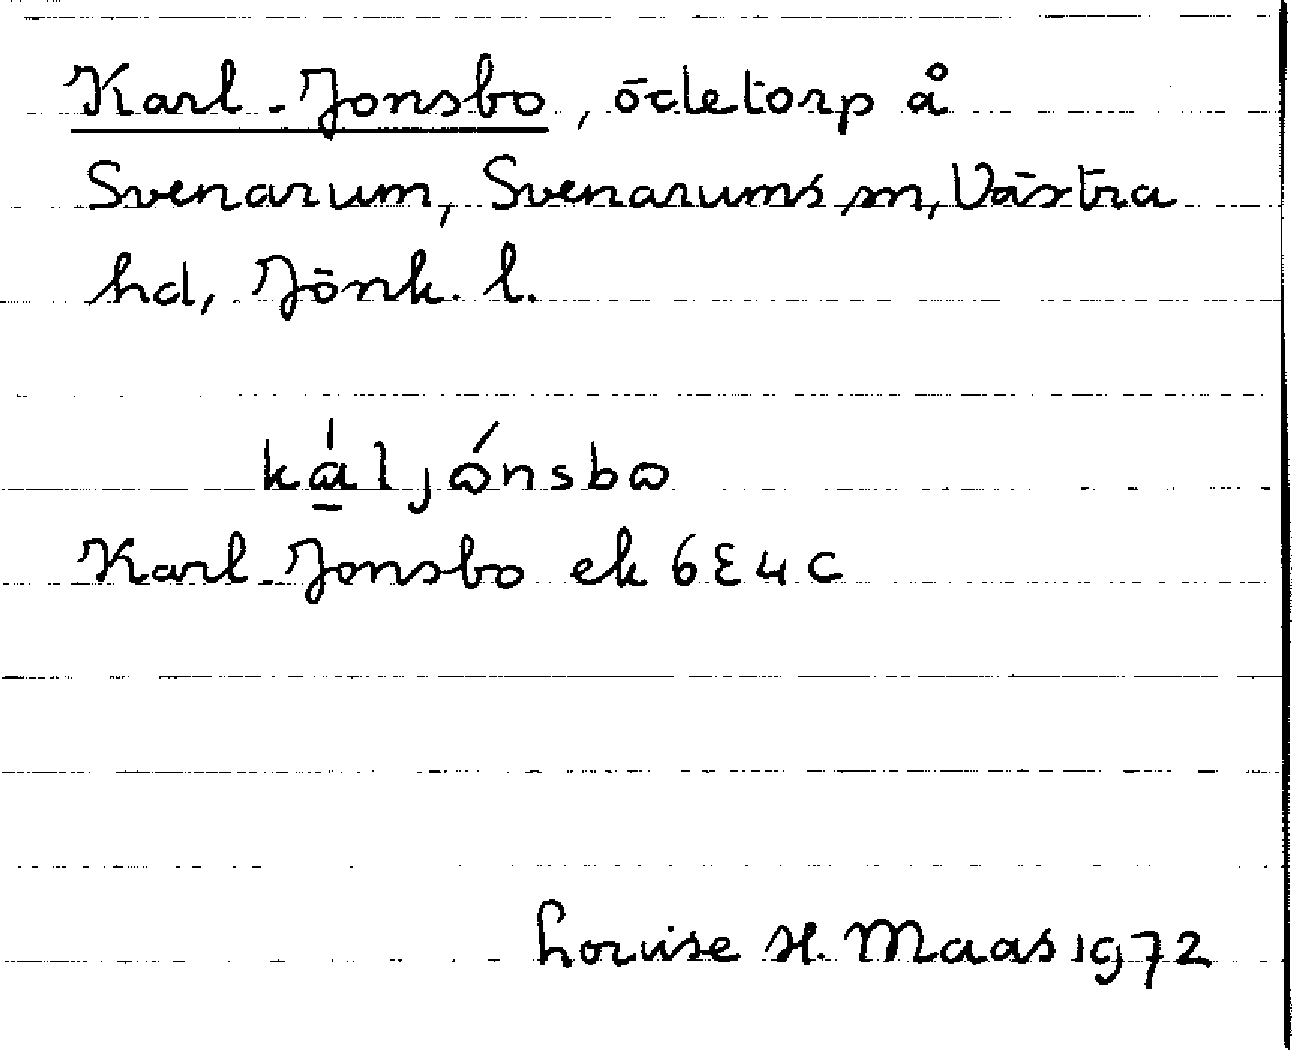 Karl-Jonsbo, ödetorp å
Svenarum, Svenarums sn, Västra
hd, Jönk. l.
ká̱l jɷ́nsbɷ
Karl-Jonsbo ek 6E4c
Louise H. Maas 1972